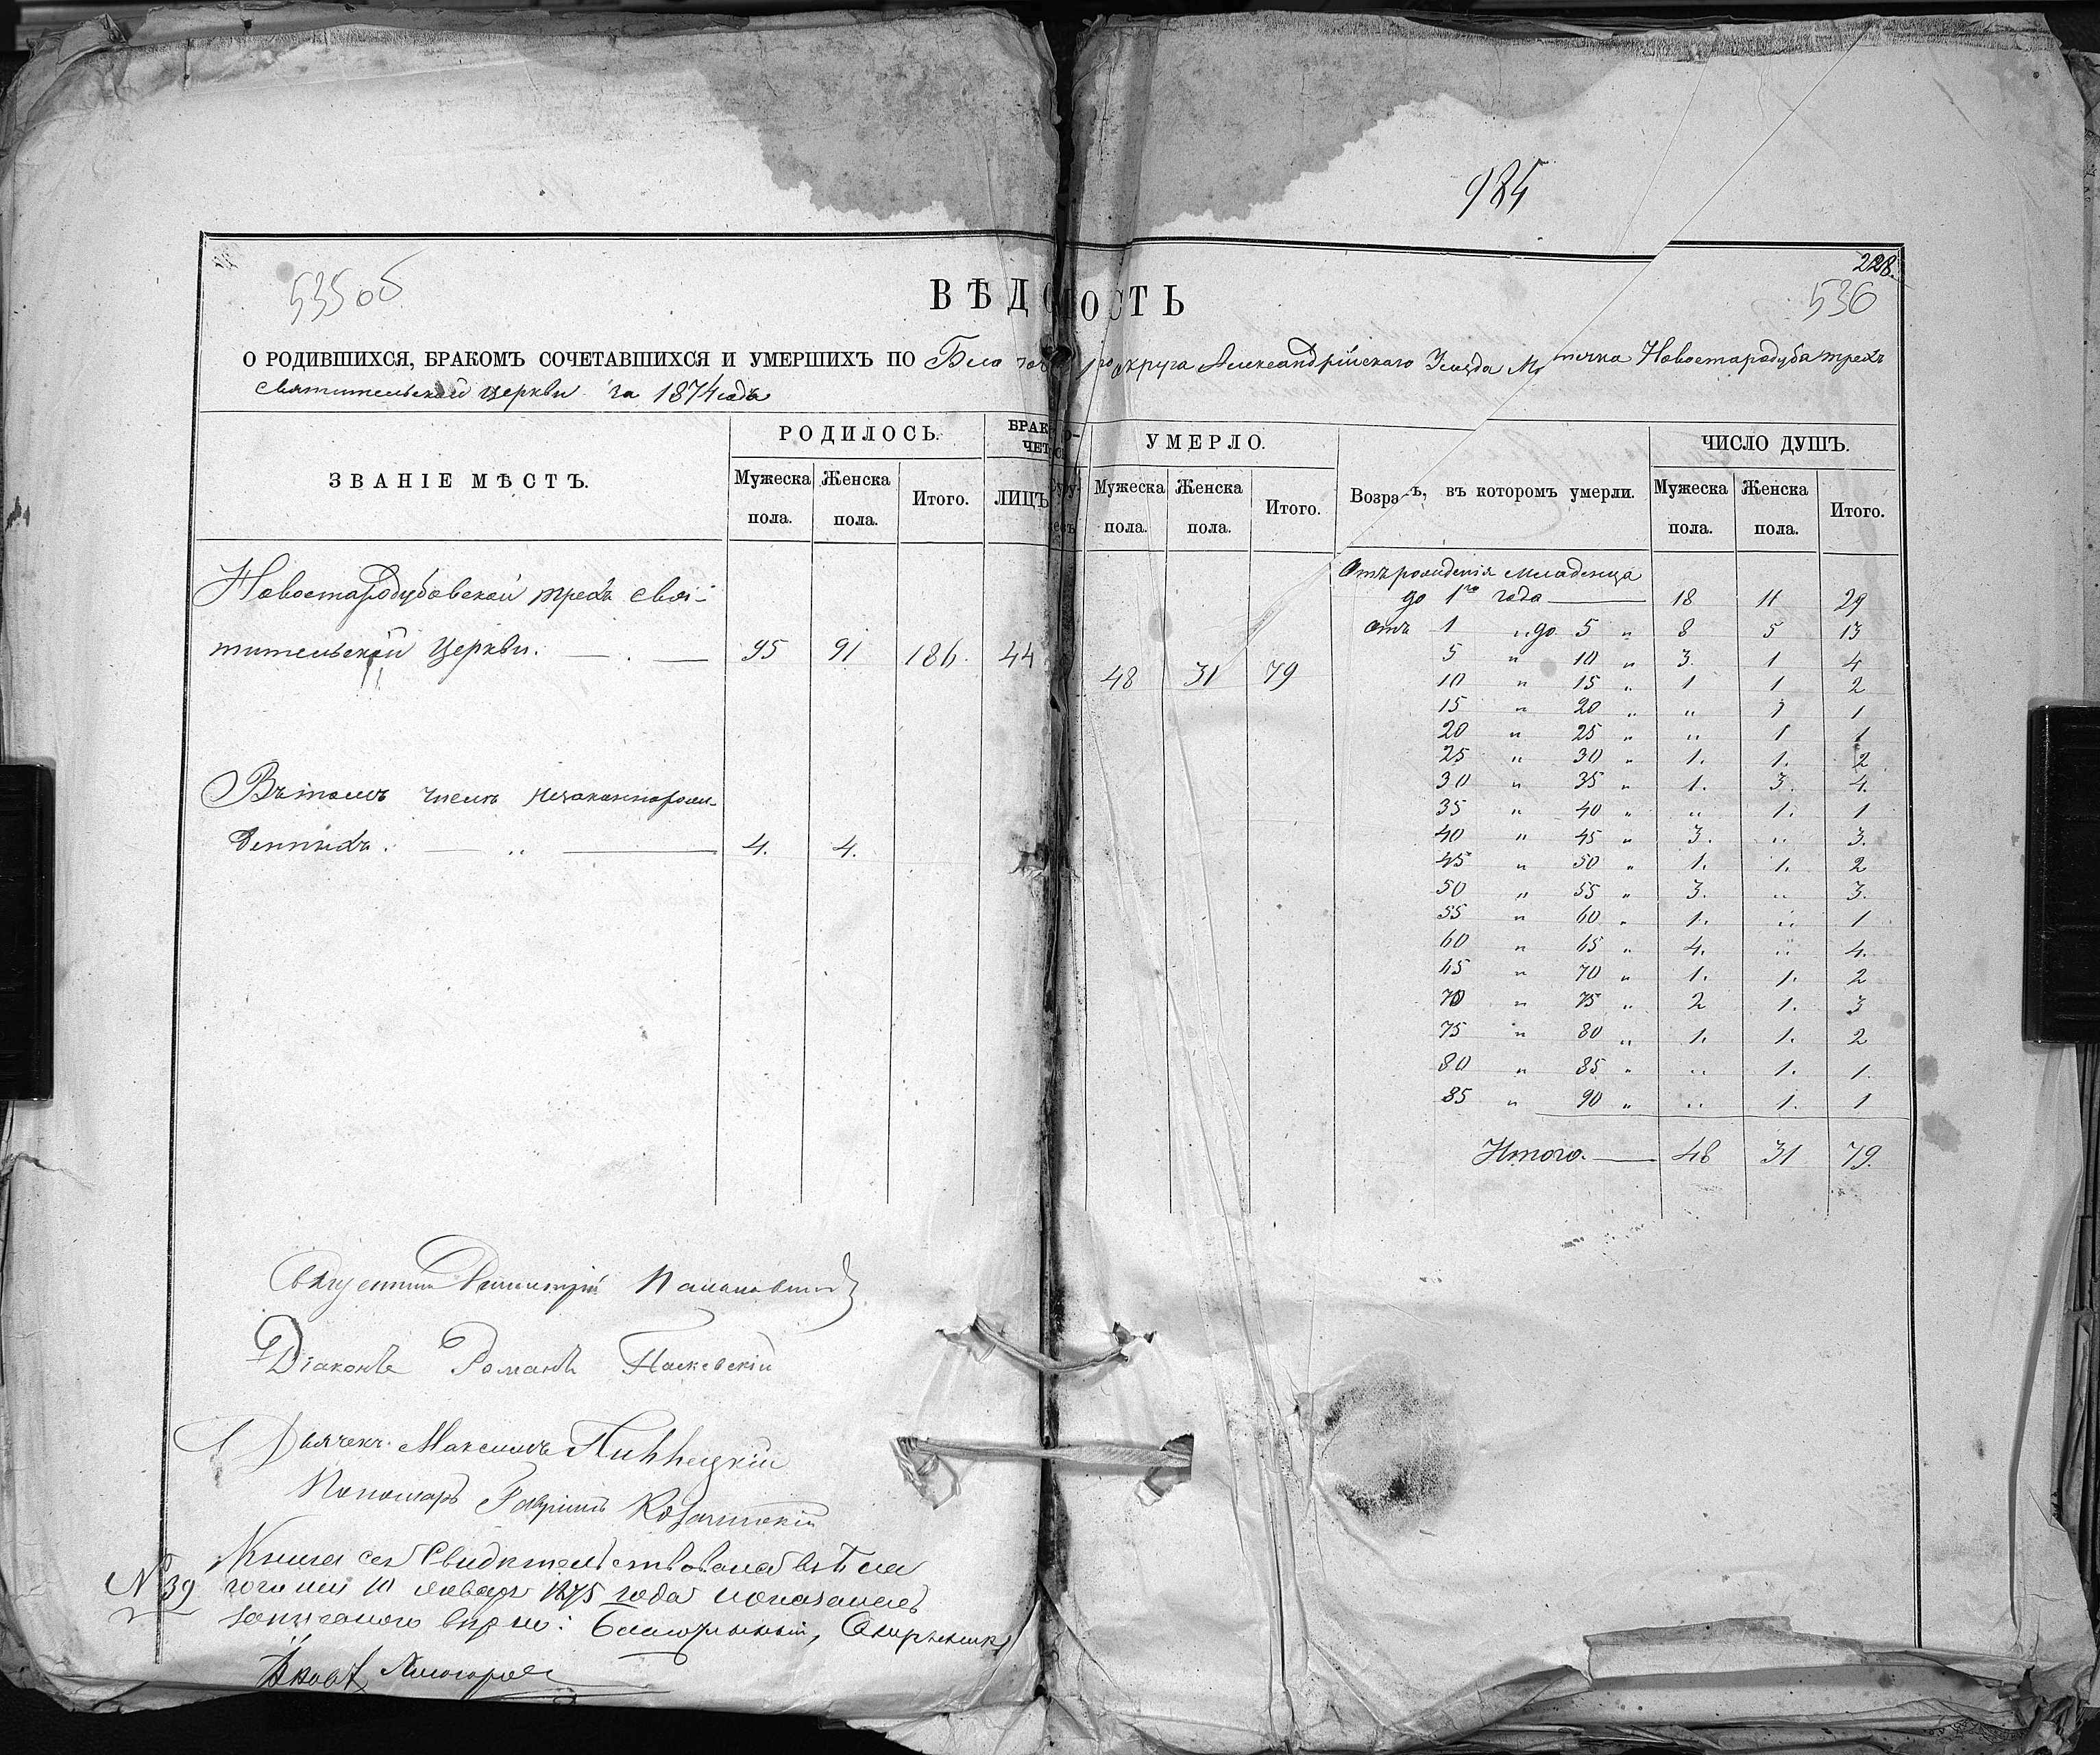 984
535 об
228.
536
ВѢДОМОСТЬ
О РОДИВШИХСЯ, БРАКОМЪ СОЧЕТАВШИХСЯ И УМЕРШИХЪ ПО округа Александрійскаго Уѣзда Новостародуба трехъ
святительской церкви за 1874 годъ
ЗВАНІЕ МѢСТЪ.
РОДИЛОСЬ.
Мужеска пола.
Женска пола.
Итого.
ЛИЦЪ
УМЕРЛО.
Мужеска пола.
Женска пола.
Итого.
въ которомъ умерли.
ЧИСЛО ДУШЪ.
Мужеска пола.
Женска пола.
Итого.
Новостародубовской трехъ свя-
тительской церкви. 95 91 186. 44 48 31 79
Въ томъ числѣ незаконнорож-
денныхъ. 4. 4.
Отъ рожденія младенца
до 1го года 18 11 29
отъ 1 " до 5 " 8 5 13
5 " 10 " 3. 1 4
10 " 15 " 1 1 2
15 " 20 " " 1 1
20 " 25 " " 1 1
25 " 30 " 1. 1. 2
30 " 35 " 1. 3. 4.
35 " 40 " " 1. 1
40 " 45 " 3. " 3.
45 " 50 " 1. 1. 2
50 " 55 " 3. " 3.
55 " 60 " 1. " 1
60 " 65 " 4. " 4.
65 " 70 " 1. 1. 2
70 " 75 " 2 1. 3
75 " 80 " 1. 1. 2
80 " 85 " " 1. 1.
85 " 90 " " 1. 1
Итого. 48 31 79.
Димитрій
Діаконъ Романъ Паскевскій
Дьячекъ Максимъ
Пономарь Гавріилъ
Книга сія свидѣтельствована
№ 39 10 января 1875 года
Благочинный,